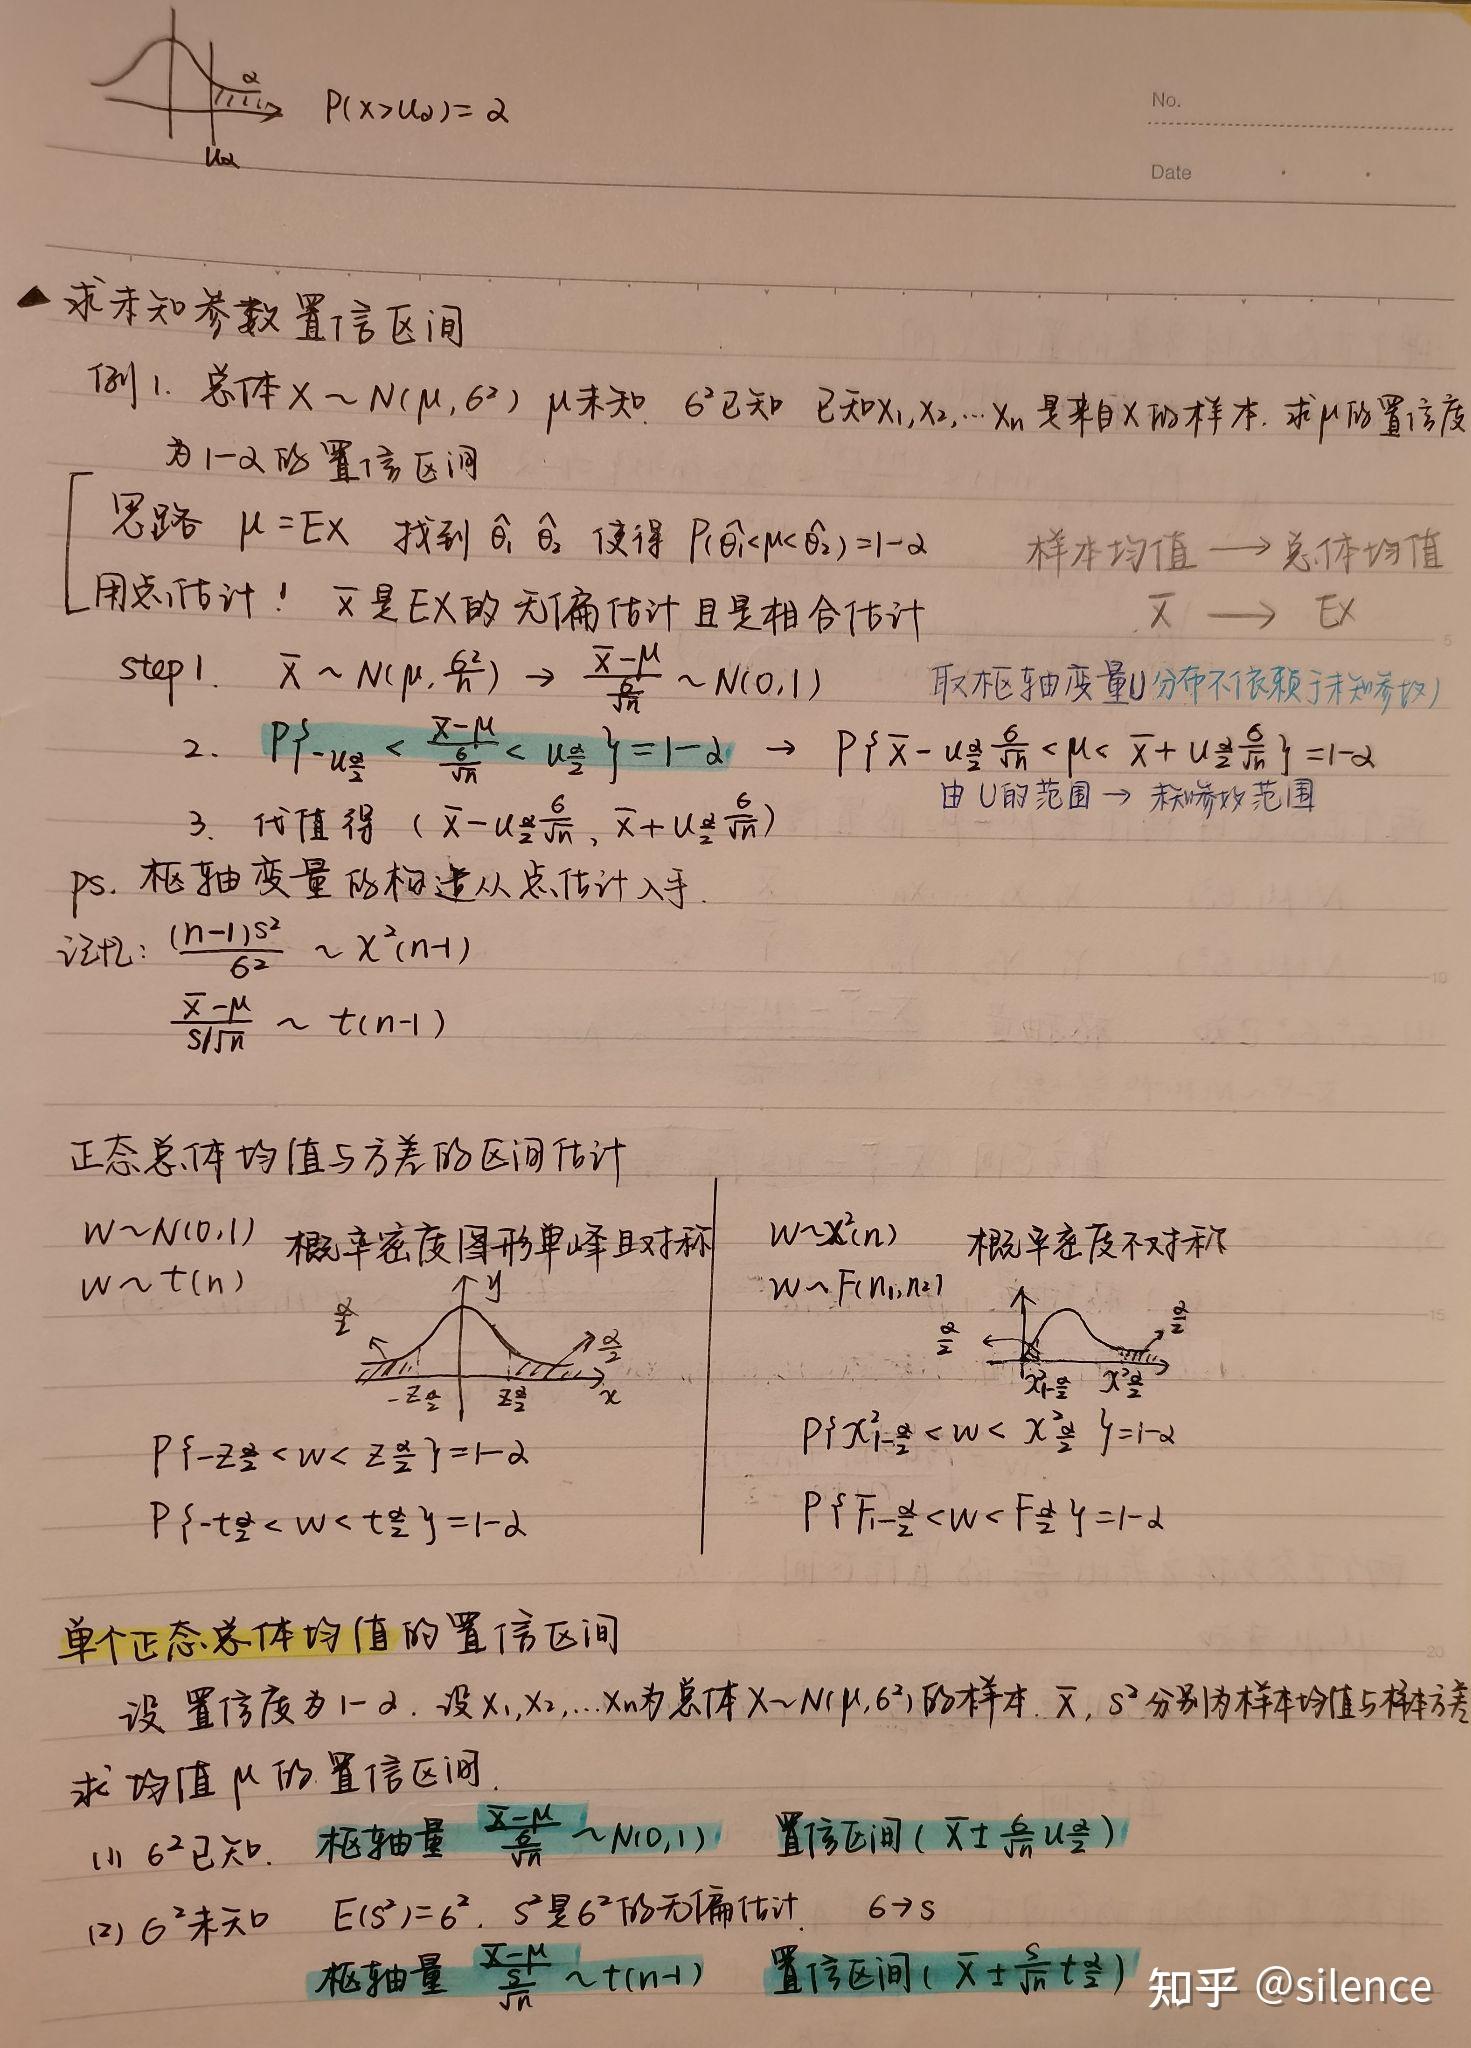 α
P(X>uα)=α
uα
No.
Date
▲求未知参数置信区间
例1. 总体X~N(μ,σ²) μ未知. σ²已知 已知X₁,X₂,…Xn是来自X的样本. 求μ的置信度
为1-α的置信区间
思路 μ=EX 找到 θ̂₁ θ̂₂ 使得 P(θ̂₁<μ<θ̂₂)=1-α
样本均值 → 总体均值
用点估计! X̄是EX的无偏估计且是相合估计
X̄ → EX
step1. X̄~N(μ, σ²/n) → (X̄-μ)/(σ/√n) ~ N(0,1) 取枢轴变量U(分布不依赖于未知参数)
2. P{-u_{α/2} < (X̄-μ)/(σ/√n) < u_{α/2}}=1-α → P{X̄-u_{α/2} σ/√n <μ< X̄+u_{α/2} σ/√n}=1-α
由U的范围→ 未知参数范围
3. 代值得 (X̄-u_{α/2} σ/√n, X̄+u_{α/2} σ/√n)
ps. 枢轴变量的构造从点估计入手.
记忆: (n-1)S²/σ² ~ χ²(n-1)
(X̄-μ)/(S/√n) ~ t(n-1)
正态总体均值与方差的区间估计
W~N(0,1) 概率密度图形单峰且对称
W~t(n)
y
α/2 α/2
-z_{α/2} z_{α/2} x
P{-z_{α/2}<W<z_{α/2}}=1-α
P{-t_{α/2}<W<t_{α/2}}=1-α
W~χ²(n) 概率密度不对称
W~F(n₁,n₂)
α/2 α/2
χ²_{1-α/2} χ²_{α/2}
P{χ²_{1-α/2}<W<χ²_{α/2}}=1-α
P{F_{1-α/2}<W<F_{α/2}}=1-α
单个正态总体均值的置信区间
设置信度为1-α. 设X₁,X₂,…Xn为总体X~N(μ,σ²)的样本. X̄, S²分别为样本均值与样本方差
求均值μ的置信区间.
(1) σ²已知. 枢轴量 (X̄-μ)/(σ/√n) ~N(0,1) 置信区间(X̄±σ/√n u_{α/2})
(2) σ²未知 E(S²)=σ². S²是σ²的无偏估计. σ→S
枢轴量 (X̄-μ)/(S/√n) ~t(n-1) 置信区间(X̄±S/√n t_{α/2})
知乎 @silence